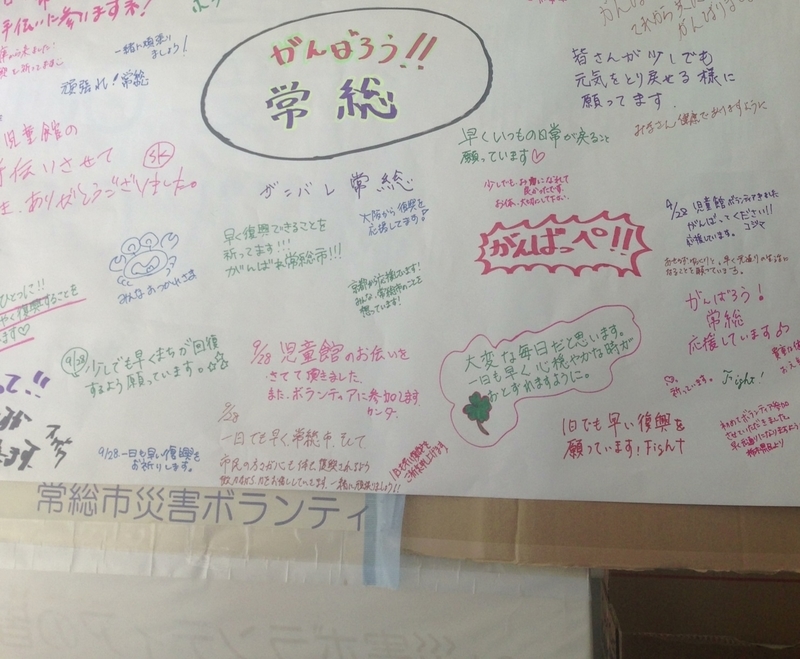 手伝いに参ります ネ!
一緒に頑張り
ましょう!
頑張れ!常総
がんばろう!!
常総
皆さんが少しでも
元気をとり戻せる様に
願ってます.
みなさん健康でありますように
児童館の
手伝いさせて
ありがとうございました。
SK
早くいつもの日常が戻ること
願っています♡
ガンバレ 常総
大阪から復興を
応援してます!
少しでも、お力になれて
良かったです。
お体、大切にして下さい。
9/28 児童館ボランティアきました
がんばってください!!
応援しています。コジマ
早く復興できることを
祈ってます!!!
がんばれ常総市!!!
がんばっペ!!
みんなおつかれさま
京都から応援しています!
みんな、常総市のことを
想っています!
ひとつに!!
復興することを
ます♡
がんばろう!
常総
応援しています
9/28 少しでも早くまちが回復
するよう願っています。☆☆
9/28 児童館のお伝いを
させて頂きました
また、ボランティアに参加します
ケンタ.
大変な毎日だと思います。
一日も早く心穏やかな時が
おとずれますように。
祈っています。 Fight!
9/28
一日でも早く常総市、そして
市民の方々が心も体も復興されるよう
一緒に頑張りましょう!!
9/28 一日も早い復興を
お祈りします。
1日も早い復興を
ご祈念申し上げます
1日でも早い復興を
願っています!Fight
初めてボランティア参加
させていただきました。
常総市災害ボランティ
災害ボランティアの